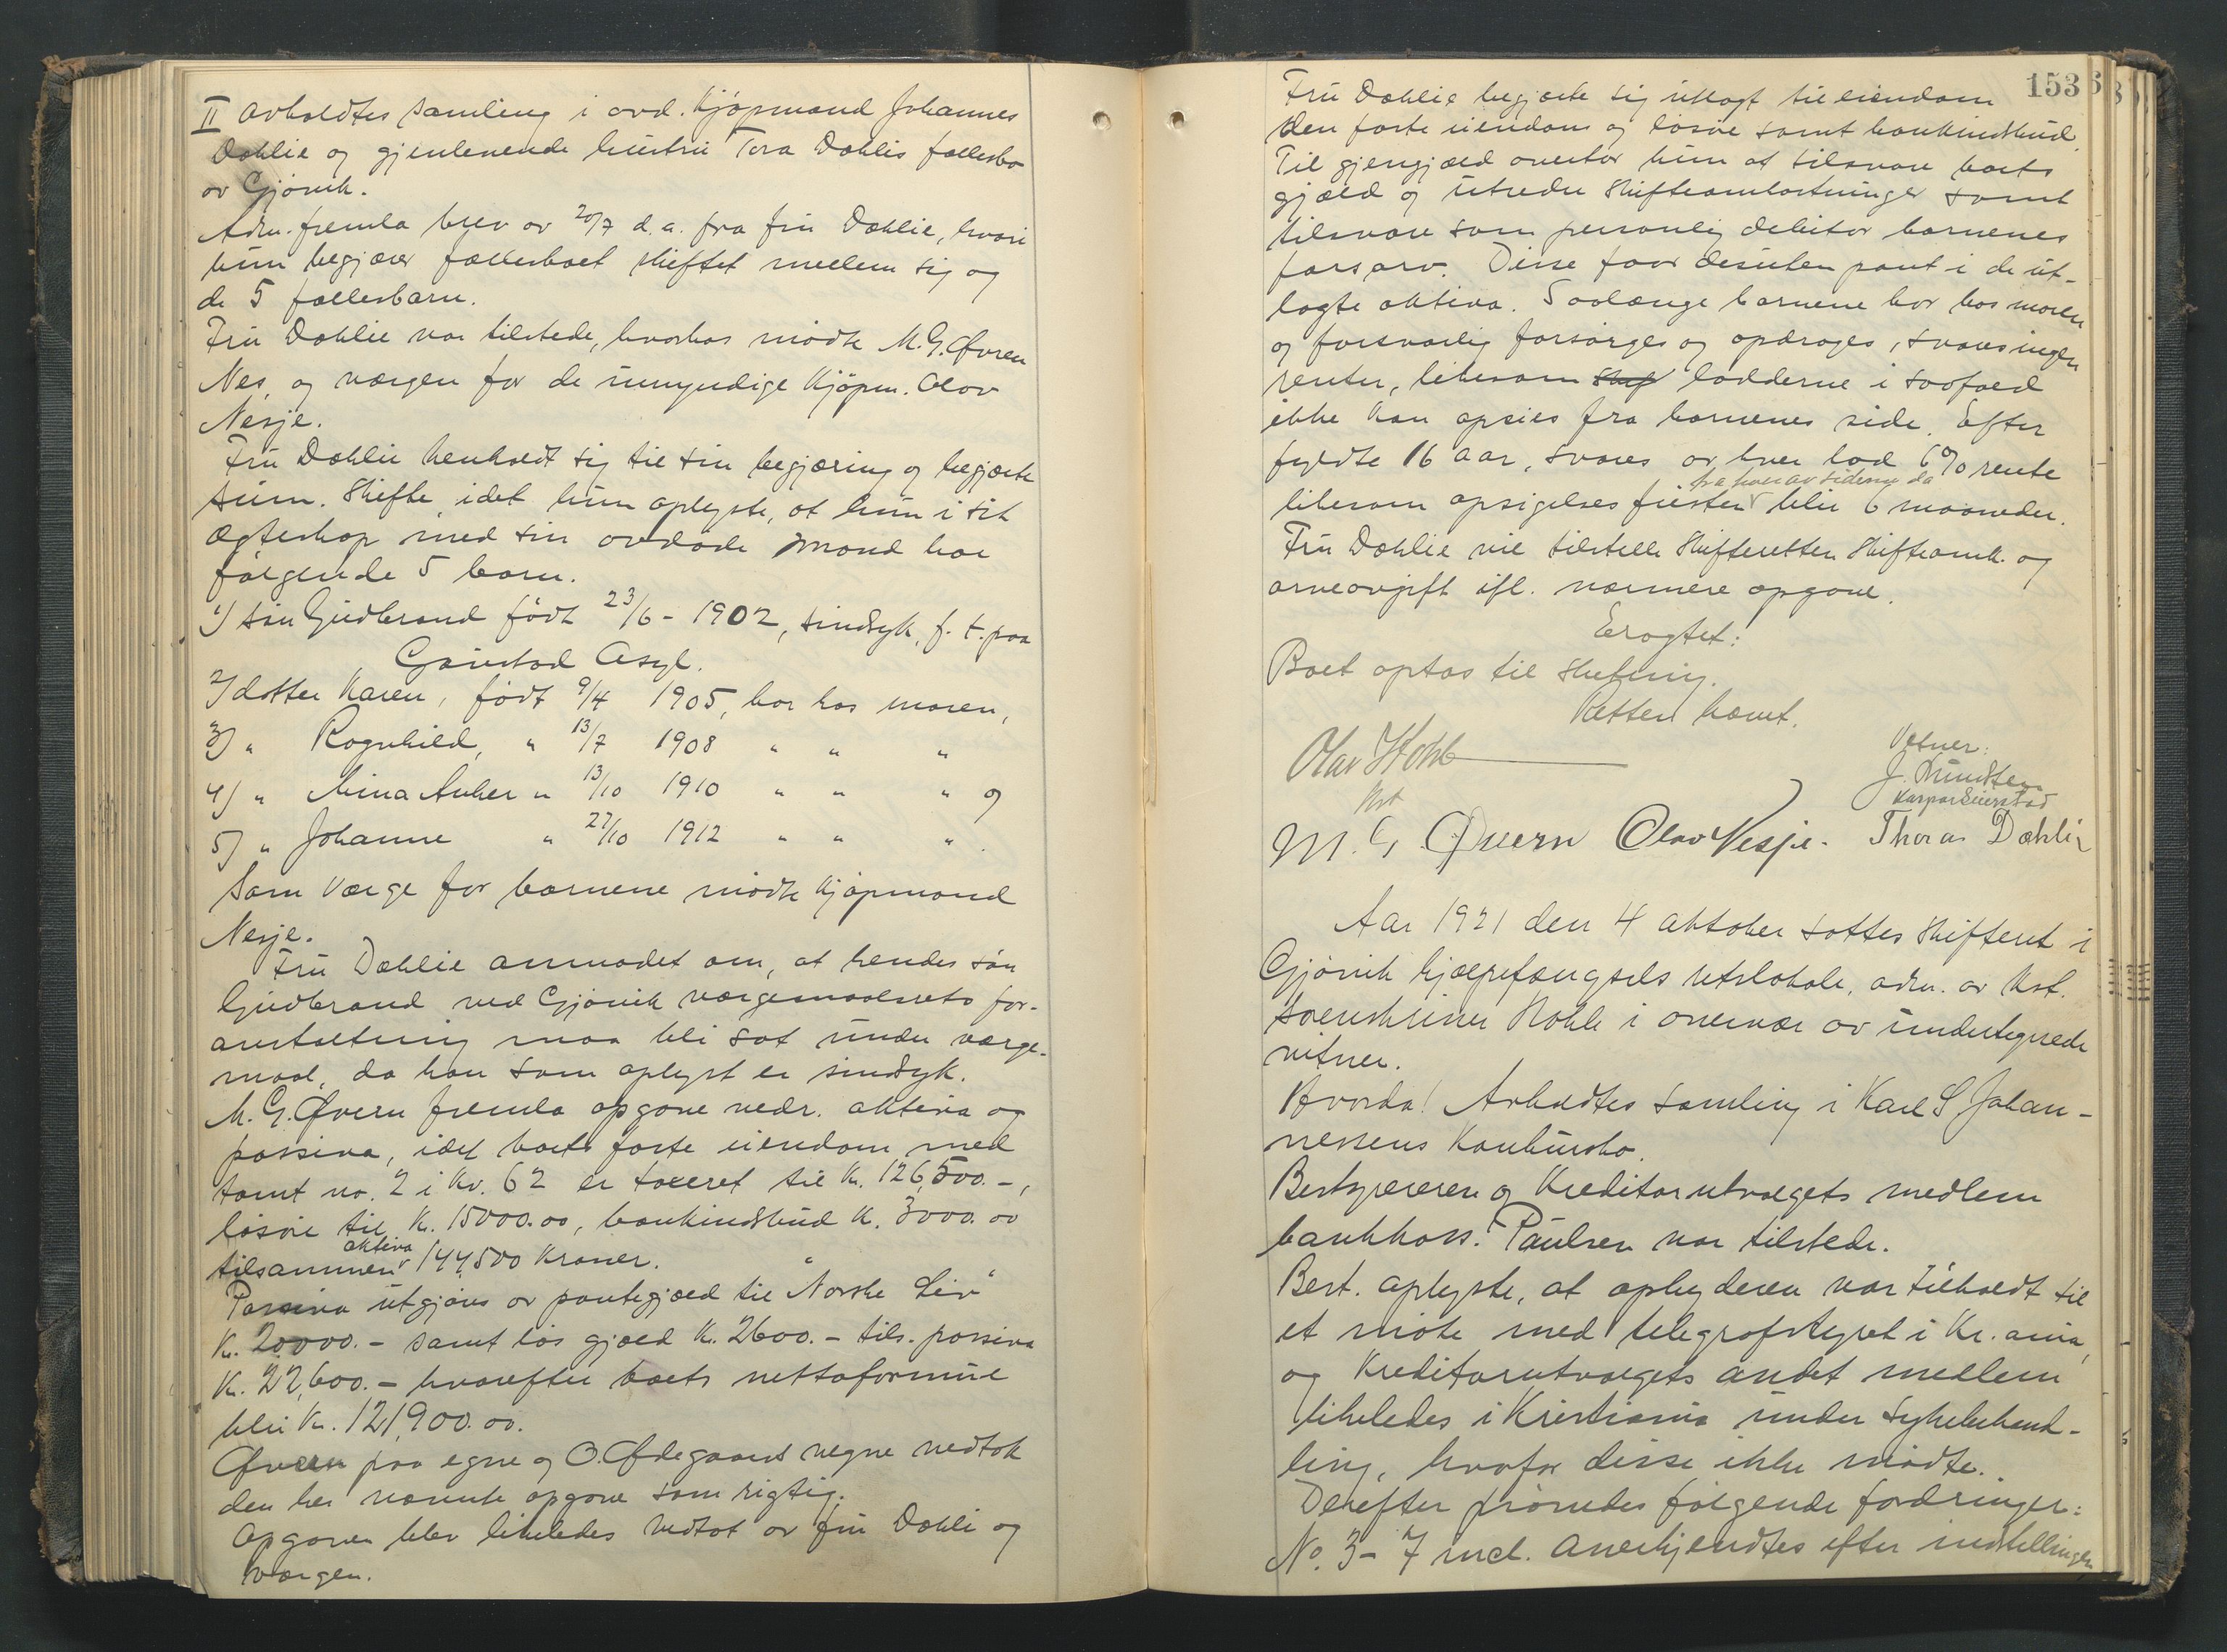 II Avholdtes samling i avd. kjøpmand Johannes
Dæhlie og gjenlevende hustru Tora Dæhlis fællesbo
av Gjøvik.
Adm. fremla brev av 20/7 d.a. fra fru Dæhlie, hvori
hun begjærer fællesboet skiftet mellem sig og
de 5 fællesbarn.
Fru Dæhlie var tilstede, hvorhos mødte M. G. Øveren
Nes, og vergen for de umyndige kjøpm. Olav
Nesje.
Fru Dæhlie henholdt sig til sin begjæring og begjærte
sum. skifte, idet hun oplyste, at hun i sit
ægteskap med sin avdøde mand har
følgende 5 barn.
1) søn Gudbrand født 23/6 - 1902, sindsyk, f. t. paa
Gaustad Asyl.
2) datter Karen, født 9/4 1905, bor hos moren,
3) " Ragnhild, " 13/7 1908 " " "
4) " Mina Anker " 13/10 1910 " " " og
5) " Johanne " 27/10 1912 " " " .
Som verge for barnene mødte kjøpmand
Nesje.
Fru Dæhlie anmodet om, at hendes søn
Gudbrand ved Gjøvik værgemaalsrets for-
anstaltning maa bli sat under værge-
maal, da han som oplyst er sindsyk.
M. G. Øvern fremla opgave vedr. aktiva og
passiva, idet boets faste eiendom med
tomt no. 2 i Kv. 62 er taxeret til Kr. 126,500.-,
løsøre til Kr. 15000.00, bankindskud Kr. 3000.00
tilsammen aktiva 144,500 Kroner.
Passiva utgjøres av pantegjæld til "Norske Liv"
Kr. 20000.- samt løs gjæld Kr. 2600.- tils. passiva
Kr. 22,600.- hvorefter boets nettoformue
blir Kr. 121,900.00.
Øvern paa egne og O. Ødegaards vegne vedtok
den her nævnte opgave som rigtig.
Opgaven blev likeledes vedtat av fru Dæhli og
værgen.
153
Fru Dæhlie begjærte sig utlagt til eiendom
den faste eiendom og løsøre samt bankindskud.
Til gjengjæld overtar hun at tilsvare boets
gjæld og utrede skifteomkostninger samt
tilsvare som personlig debitor barnenes
farsarv. Disse faar desuten pant i de ut-
lagte aktiva. Saalænge barnene bor hos moren
og forsvarlig forsørges og opdrages, svares ingen
renter, likesom lodderne i saafald
ikke kan opsies fra barnenes side. Efter
fyldte 16 aar, svares av hver lod 6% rente
likesom opsigelses fristen fra hver av siderne da blir 6 maaneder.
Fru Dæhlie vil tilstille skifteretten skifteomk. og
arveavgift ifl. nærmere opgave.
Eragtet:
Boet optas til slutning.
Retten hævet.
Olav Kohb
kst
Vetner:
J. Knudsen
Kaspar Seierstad
M. G. Øvern Olav Nesje. Thora Dæhlie
Aar 1921 den 4 oktober sattes skifteret i
Gjøvik hjælpefængsels retslokale, adm. av kst.
sorenskriver Kohb i overvær av undertegnede
vitner.
Hvorda! Avholdtes samling i Karl S. Johan-
nessens konkursbo.
Bestyreren og kreditorutvalgets medlem
bankkass. Paulsen var tilstede.
Best. oplyste, at opbyderen var tilholdt til
et møte med telegrafstyret i Kr. ania,
og kreditorutvalgets andet medlem
likeledes i Kristiania under sykebehand-
ling, hvorfor disse ikke mødte.
Derefter prøvedes følgende fordringer:
No. 3 - 7 incl. anerkjendtes efter indstillingen,